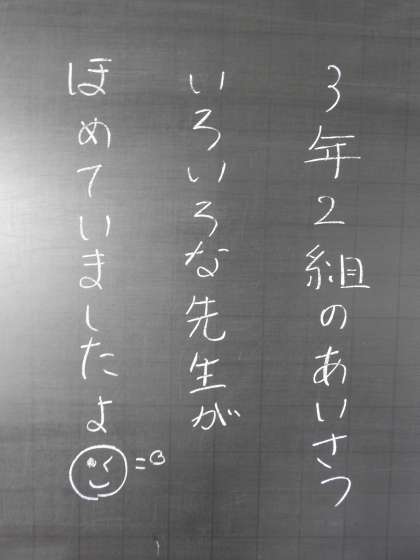 3年2組のあいさつ
いろいろな先生が
ほめていましたよ